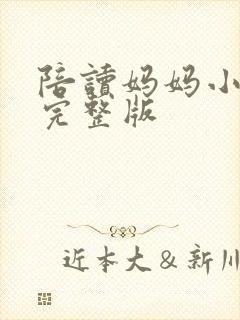 陪讀妈妈小
完整版
近本大&新川